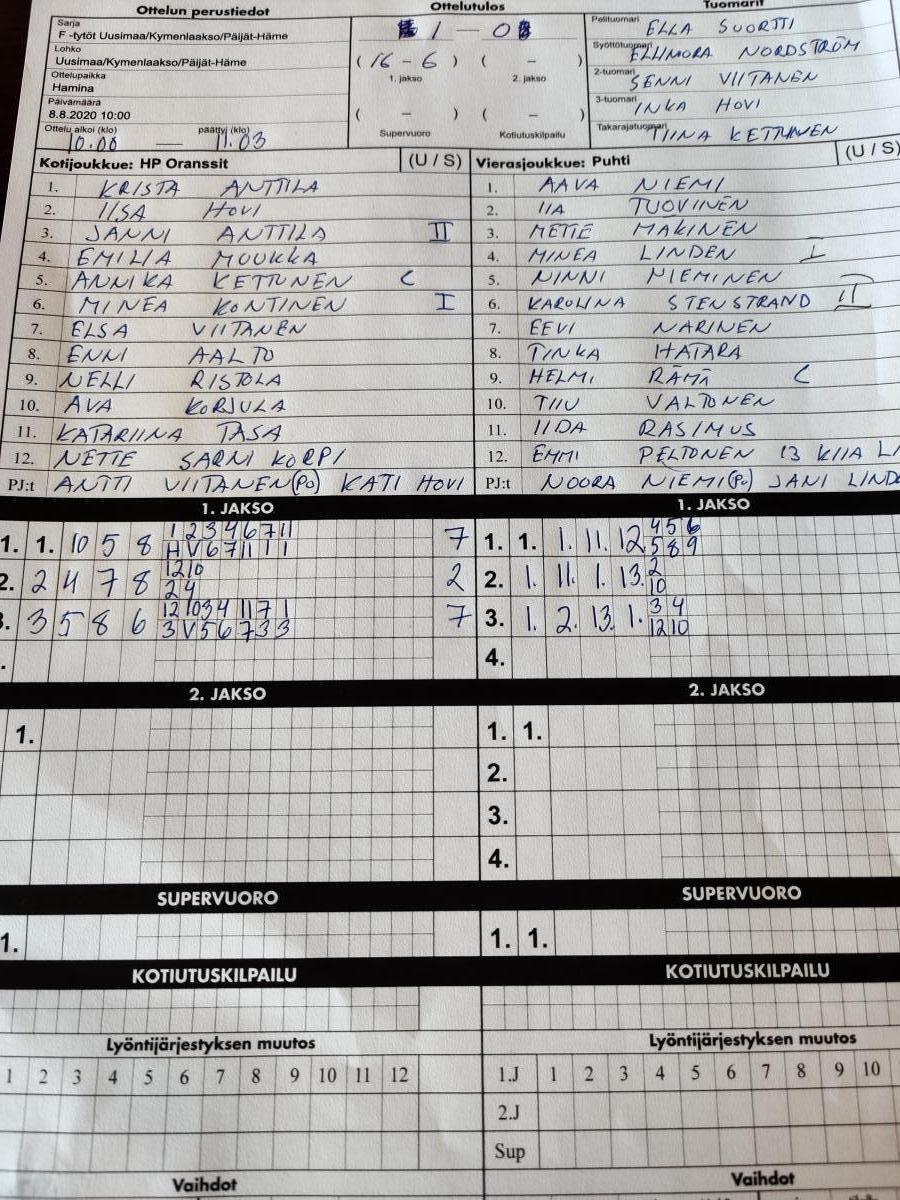 Ottelun perustiedot
Ottelutulos
Tuomarit
Sarja
F -tytöt Uusimaa/Kymenlaakso/Päijät-Häme
Lohko
Uusimaa/Kymenlaakso/Päijät-Häme
Ottelupaikka
Hamina
Päivämäärä
8.8.2020 10:00
Ottelu alkoi (klo) päättyi (klo)
10.00 — 11.03
1 — 0
( 16 - 6 ) ( - )
1. jakso 2. jakso
( - ) ( - )
Supervuoro Kotiutuskilpailu
Pelituomari ELLA SUORTTI
Syöttötuomari ELLINORA NORDSTRÖM
2-tuomari SENNI VIITANEN
3-tuomari INKA HOVI
Takarajatuomari TIINA KETTUNEN
Kotijoukkue: HP Oranssit (U / S)
1. KRISTA ANTTILA
2. IISA HOVI
3. JANNI ANTTILA II
4. EMILIA MOUKKA
5. ANNIKA KETTUNEN C
6. MINEA KONTINEN I
7. ELSA VIITANEN
8. ENNI AALTO
9. NELLI RISTOLA
10. AVA KORJULA
11. KATARIINA TASA
12. NETTE SARNIKORPI
PJ:t ANTTI VIITANEN (PO) KATI HOVI
Vierasjoukkue: Puhti (U / S)
1. AAVA NIEMI
2. IIA TUOVINEN
3. METTE MÄKINEN
4. MINEA LINDEN I
5. NINNI NIEMINEN
6. KAROLINA STENSTRAND II
7. EEVI NARINEN
8. TINKA HATARA
9. HELMI RÄMÄ C
10. TIIU VALTONEN
11. IIDA RASIMUS
12. EMMI PELTONEN 13 KIIA
PJ:t NOORA NIEMI (PO) JANI
1. JAKSO
1. 1. 10 5 8 1 2 3 4 6 7 11 7
H V 6 7 11 1 1
2. 2 4 7 8 12 10 2
2 4
3 5 8 6 12 10 3 4 11 7 1 7
3 V 5 6 7 3 3
1. JAKSO
1. 1. 1. 11. 12 4 5 6
5 8 9
2. 1. 11. 1. 13. 2
10
3. 1. 2. 13. 1. 3 4
12 10
4.
2. JAKSO
1.
2. JAKSO
1. 1.
2.
3.
4.
SUPERVUORO
1.
SUPERVUORO
1. 1.
KOTIUTUSKILPAILU
KOTIUTUSKILPAILU
Lyöntijärjestyksen muutos
1 2 3 4 5 6 7 8 9 10 11 12
Lyöntijärjestyksen muutos
1.J 1 2 3 4 5 6 7 8 9 10
2.J
Sup
Vaihdot
Vaihdot